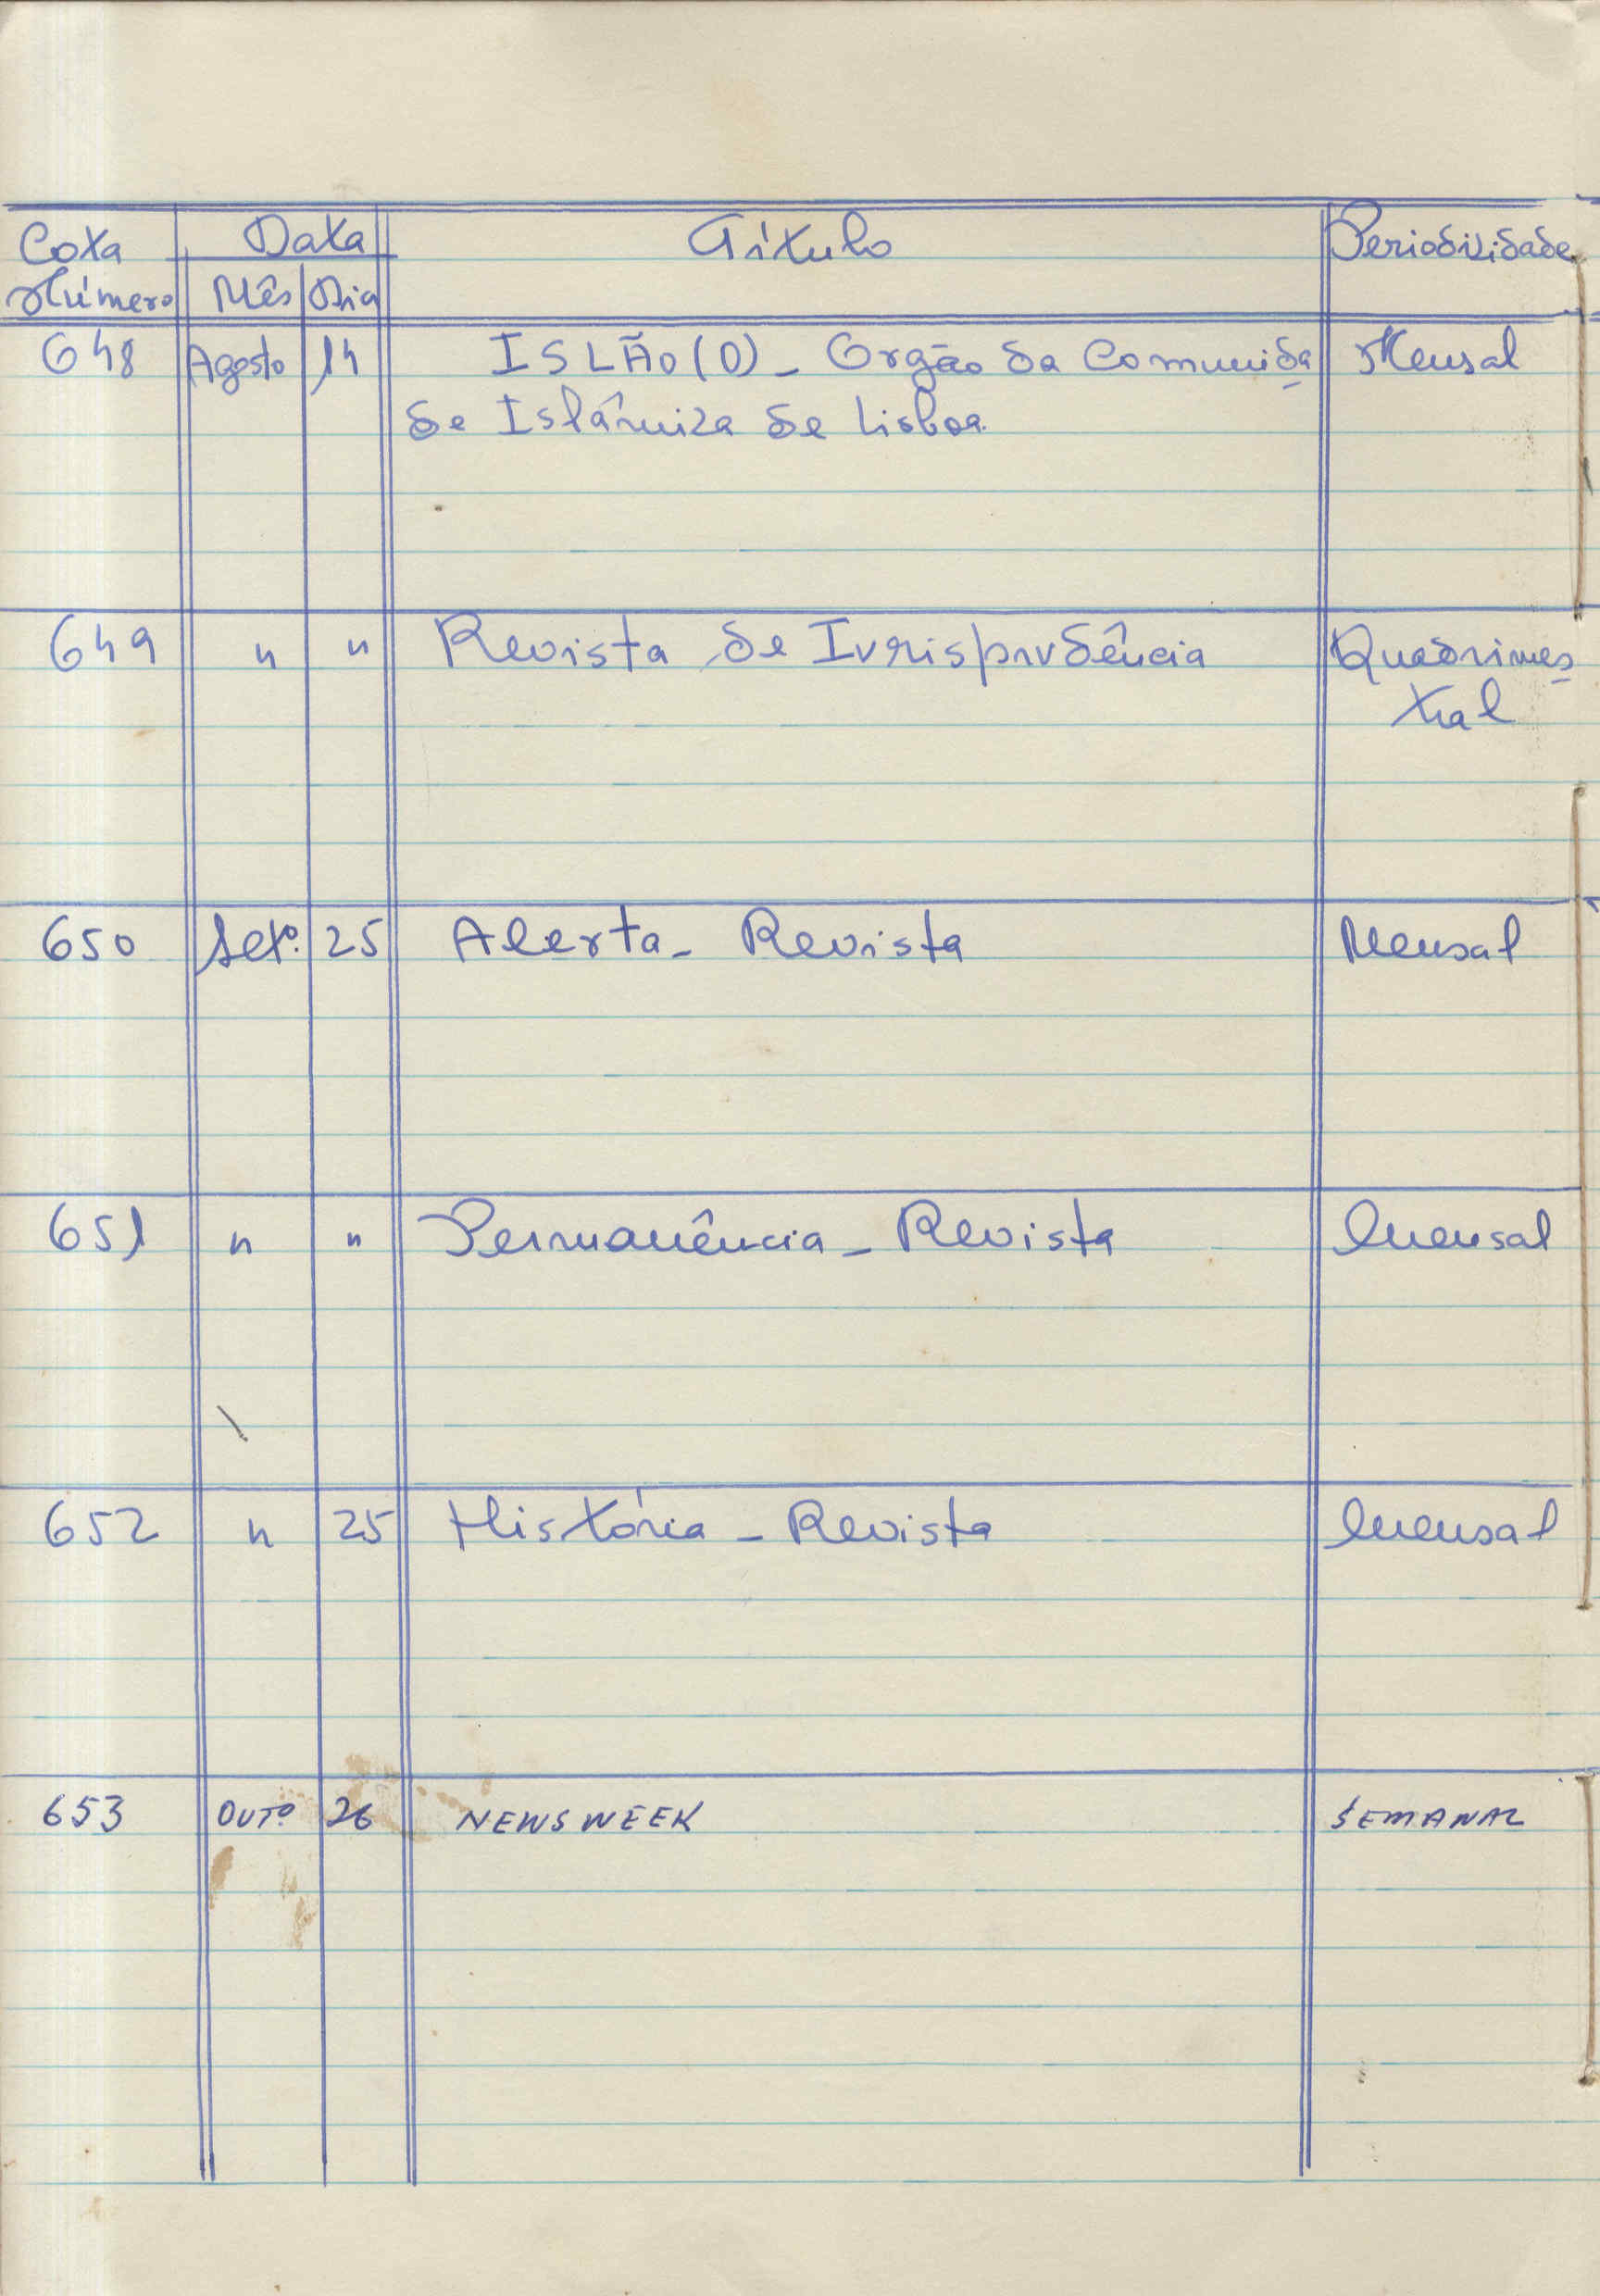 Cota Data Título Periodicidade
Número Mês Dia
648 Agosto 14 ISLÃO (O) - Orgão da Comunida Mensal
de Islâmica de Lisboa.
649 " " Revista de Iurisprudência Quadrimes
tral
650 Setº. 25 Alerta - Revista Mensal
651 " " Permanência - Revista Mensal
652 " 25 História - Revista Mensal
653 OUTº. 26 NEWSWEEK SEMANAL